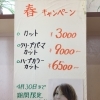 春 キャンペーン
カット ¥3000
クリアパーマ
カット ¥9000
ハーブカラー
カット ¥6500
4月30日まで
期間限定